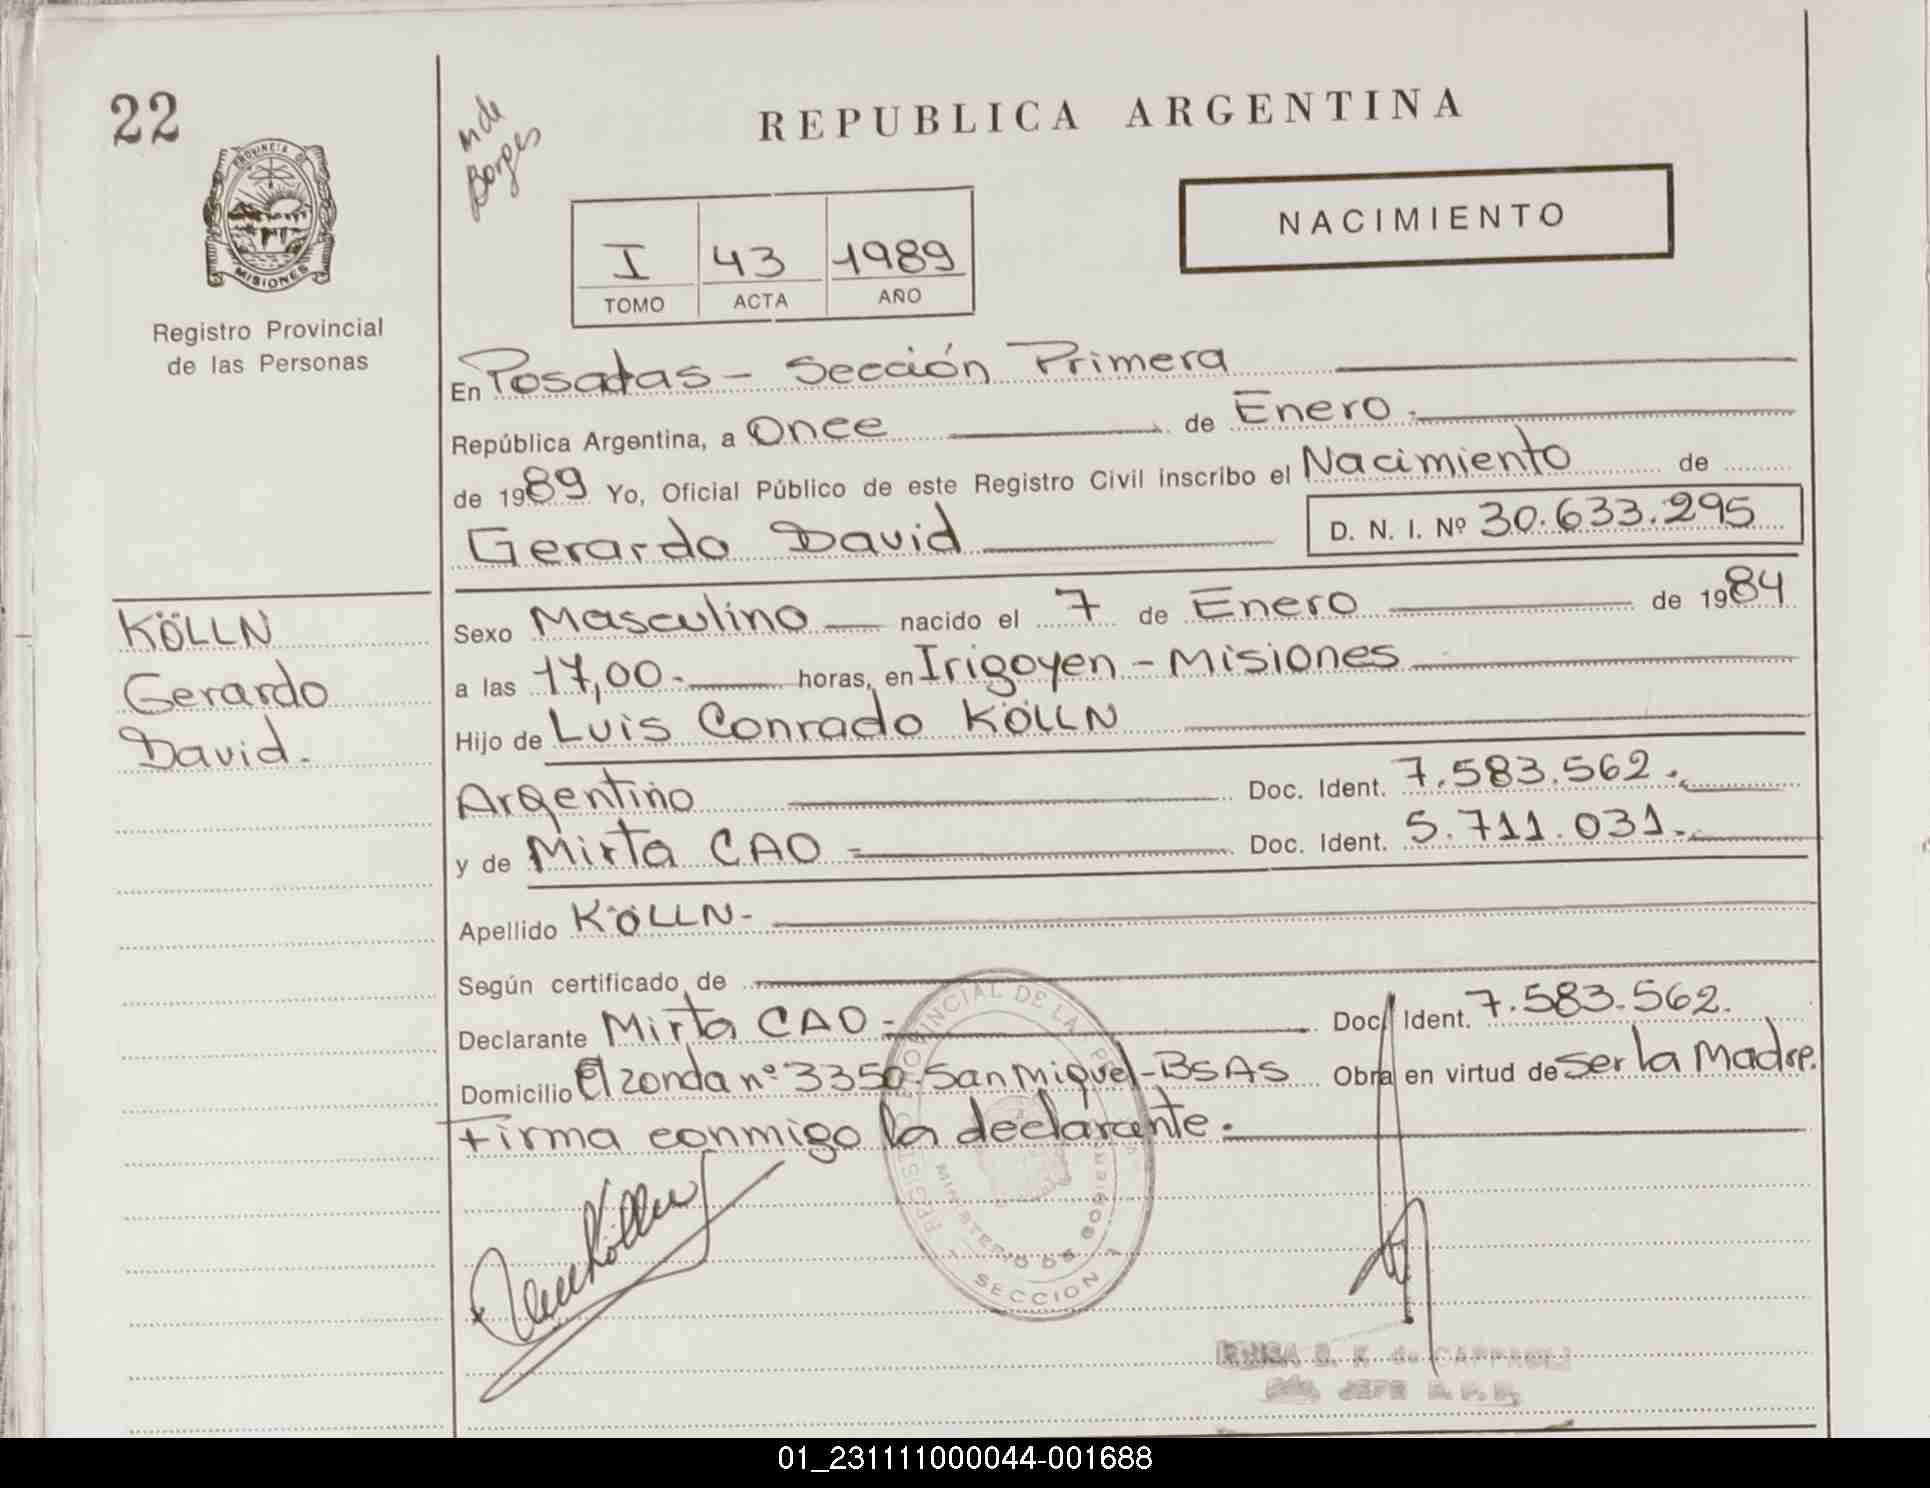 22
m de
Borges
REPUBLICA ARGENTINA
PROVINCIA DE
MISIONES
Registro Provincial
de las Personas
NACIMIENTO
I 43 1989
TOMO ACTA AÑO
En Posadas - Sección Primera
República Argentina, a Once de Enero.
de 1989 Yo, Oficial Público de este Registro Civil inscribo el Nacimiento de
Gerardo David D. N. I. Nº 30.633.295
KÖLLN
Gerardo
David.
Sexo Masculino nacido el 7 de Enero de 1984
a las 17,00. horas, en Irigoyen - Misiones
Hijo de Luis Conrado KÖLLN
Argentino Doc. Ident. 7.583.562.
y de Mirta CAO Doc. Ident. 5.711.031.
Apellido KÖLLN-
Según certificado de
Declarante Mirta CAO - Doc. Ident. 7.583.562.
Domicilio El zonda nº 3350. San Miguel - BSAS Obra en virtud de ser la Madre.
Firma conmigo la declarante.
REGISTRO PROVINCIAL DE LAS PERSONAS
MINISTERIO DE GOBIERNO
SECCION 1
JEFE
01_231111000044-001688